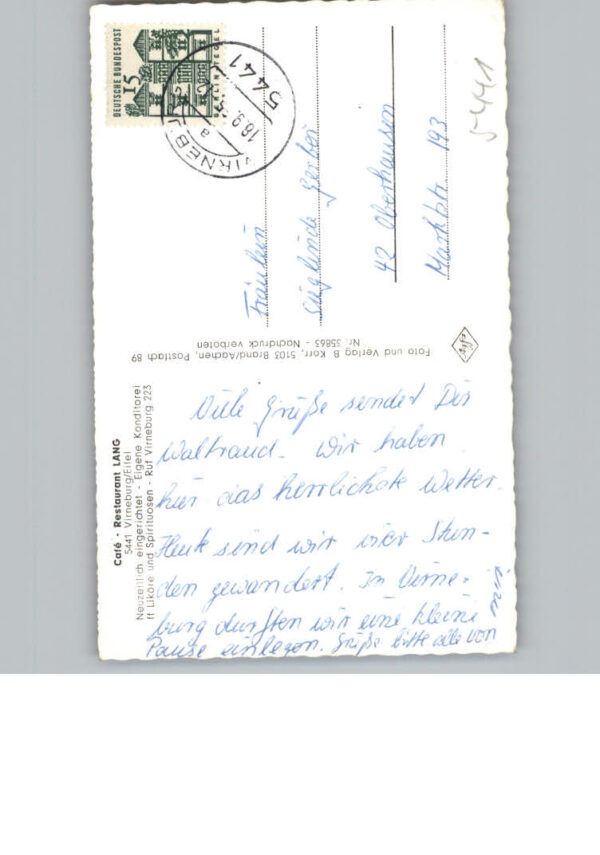 DEUTSCHE BUNDESPOST
15
5441
18.9.
a
5441
Fräulein
Sieglinde Gerber
42 Oberhausen
Marktstr. 193
Foto und Verlag B. Korr, 5103 Brand/Aachen, Postfach 89
Nr. 35863 - Nachdruck verboten
Café - Restaurant LANG
5441 Virneburg/Eifel
Neuzeitlich eingerichtet - Eigene Konditorei
ff Liköre und Spirituosen - Ruf Virneburg 223
Viele Grüße sendet Dir
Waltraud. Wir haben
hier das herrlichste Wetter.
Heute sind wir vier Stun-
den gewandert. In Virne-
burg durften wir eine kleine
Pause einlegen. Grüße bitte alle von
mir